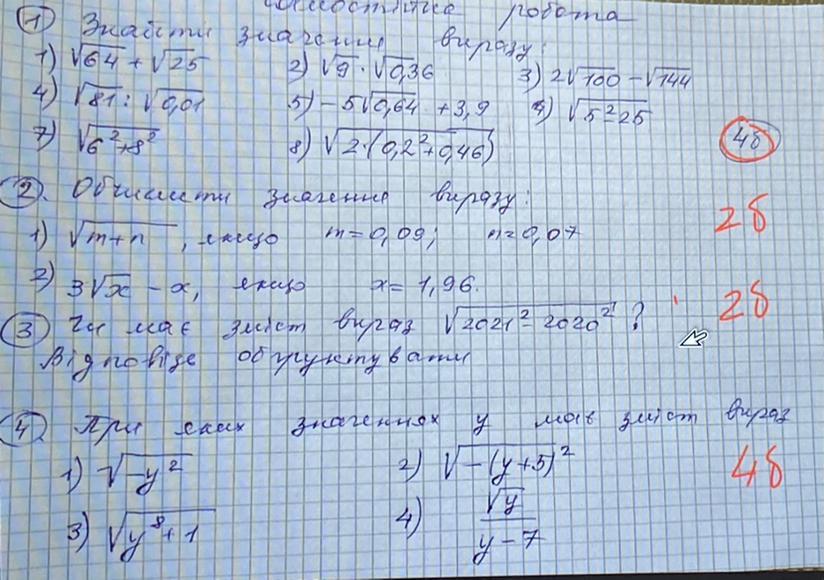 самостійна робота
① Знайти значення виразу:
1) √64 + √25 2) √9 · √0,36 3) 2√100 − √144
4) √81 : √0,01 5) −5√0,64 + 3,9 √(5²−25)
7) √(6²+8²) 8) √(2·(0,2²+0,46)) 4б
② Обчислити значення виразу: 2б
1) √(m+n), якщо m=0,09; n=0,07
2) 3√x − x, якщо x=1,96.
③ Чи має зміст вираз √(2021²−2020²)? 2б
Відповідь обґрунтувати
④ При яких значеннях y має зміст вираз
1) √(−y²) 2) √(−(y+5)²) 4б
3) √(y⁸+1) 4) √y/(y−7)